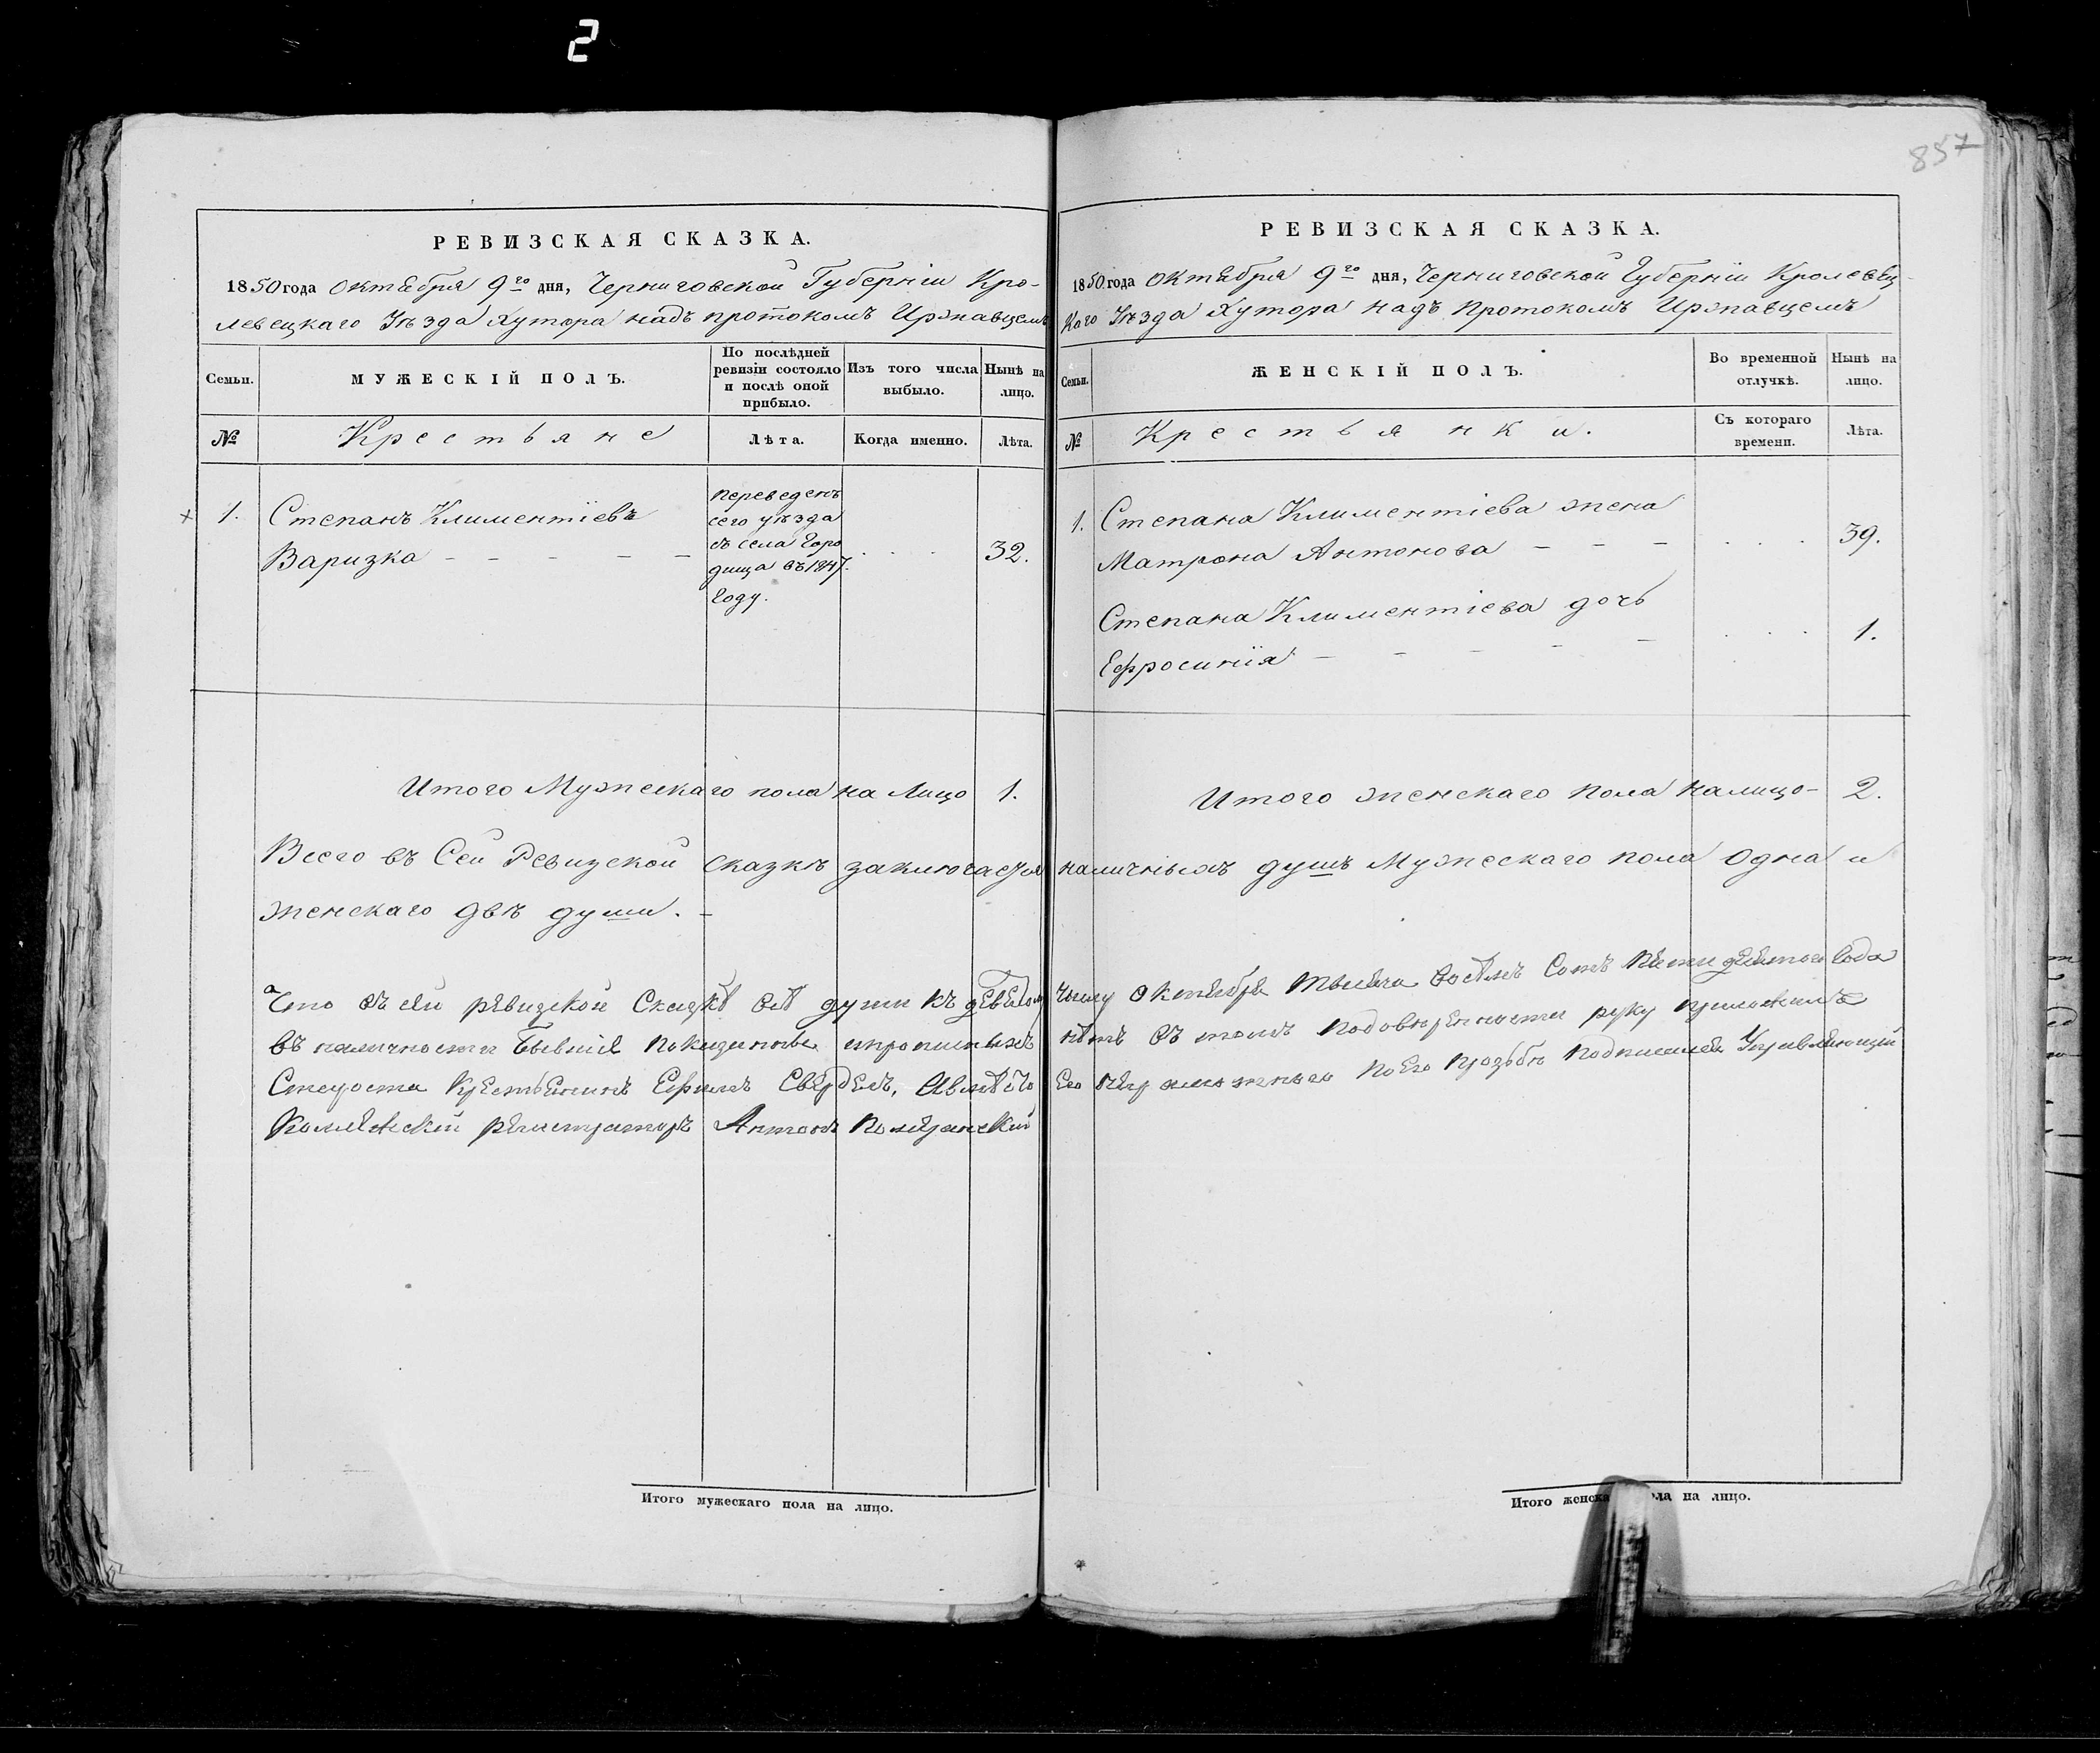 2
857
РЕВИЗСКАЯ СКАЗКА.
1850 года Октября 9го дня, Черниговской Губерніи Кро-
левецкаго Уѣзда Хутора надъ протокомъ Иржавцемъ
Семьи.
МУЖЕСКІЙ ПОЛЪ.
По послѣдней
ревизіи состояло
и послѣ оной
прибыло.
Изъ того числа
выбыло.
Нынѣ на
лицо.
№
Крестьяне
Лѣта.
Когда именно.
Лѣта.
1.
Степанъ Климентіевъ
Варизка - - - - -
переведенъ
сего уѣзда
съ села Горо
дища въ 1847.
Году.
32.
Итого Мужескаго пола на лицо 1.
РЕВИЗСКАЯ СКАЗКА.
1850 года Октября 9го дня, Черниговской Губерніи Кролевец-
Каго Уѣзда Хутора надъ Протокомъ Иржавцемъ
Семьи.
ЖЕНСКІЙ ПОЛЪ.
Во временной
отлучкѣ.
Нынѣ на
лицо.
№
Крестьянки.
Съ котораго
времени.
Лѣта.
1.
Степана Климентіева жена
Матрона Антонова - - - 39.
Степана Климентіева дочь
Ефросинія - - - - - 1.
Итого женскаго пола налицо- 2.
Всего въ Сей Ревизской сказкѣ заключается наличныхъ душъ Мужескаго пола Одна и
женскаго двѣ души. -
Что въ сей ревизской Сказкѣ всѣ души къ девятому числу Октября тысяча восѣмъ Сотъ пятидесятого Года
въ наличности бывшіе показанны и прописныхъ нѣтъ въ томъ подовѣренности руку приложилъ
Староста Крестьянинъ Ефимъ а вмѣсто Его неграмотнаго по Его прозьбѣ подписался Управляющій
Коллежскій регистраторъ Антонъ
Итого мужескаго пола на лицо.
Итого женска ола на лицо.